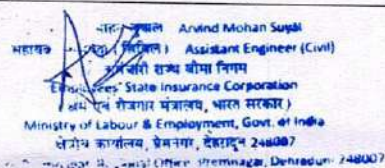 Arvind Mohan Suyal
सहायक (सिविल) Assistant Engineer (Civil)
कर्मचारी राज्य बीमा निगम
State Insurance Corporation
श्रम एवं रोजगार मंत्रालय, भारत सरकार)
Ministry of Labour & Employment, Govt. of India
क्षेत्रीय कार्यालय, प्रेमनगर, देहरादून 248007
Office Premnagar, Dehradun- 248007